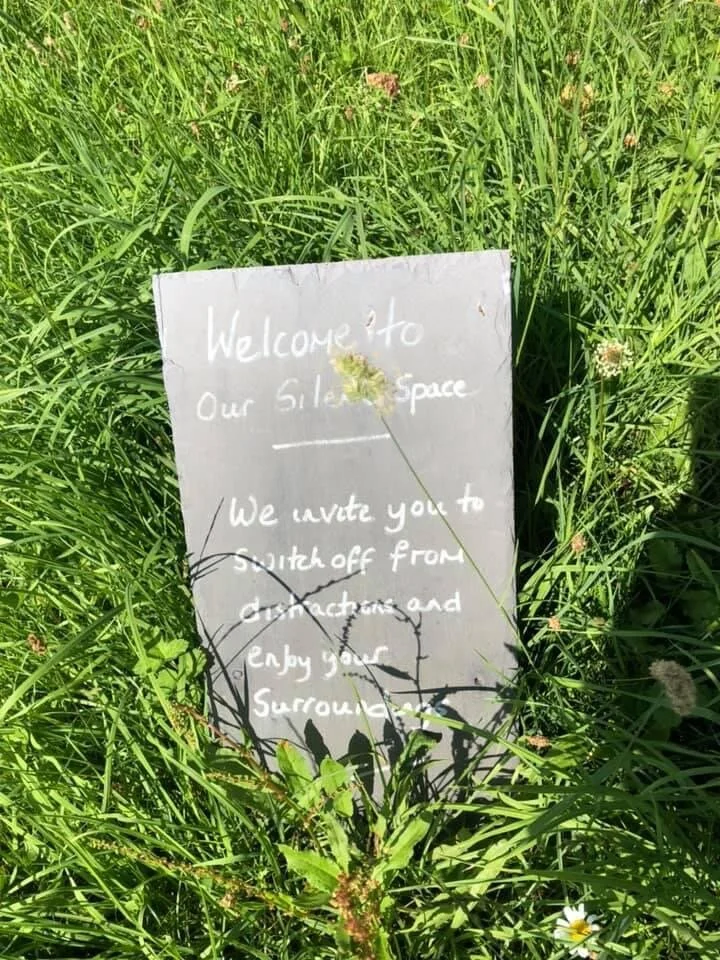 Welcome to
Our Silent Space
We invite you to
Switch off from
distractions and
enjoy your
Surroundings